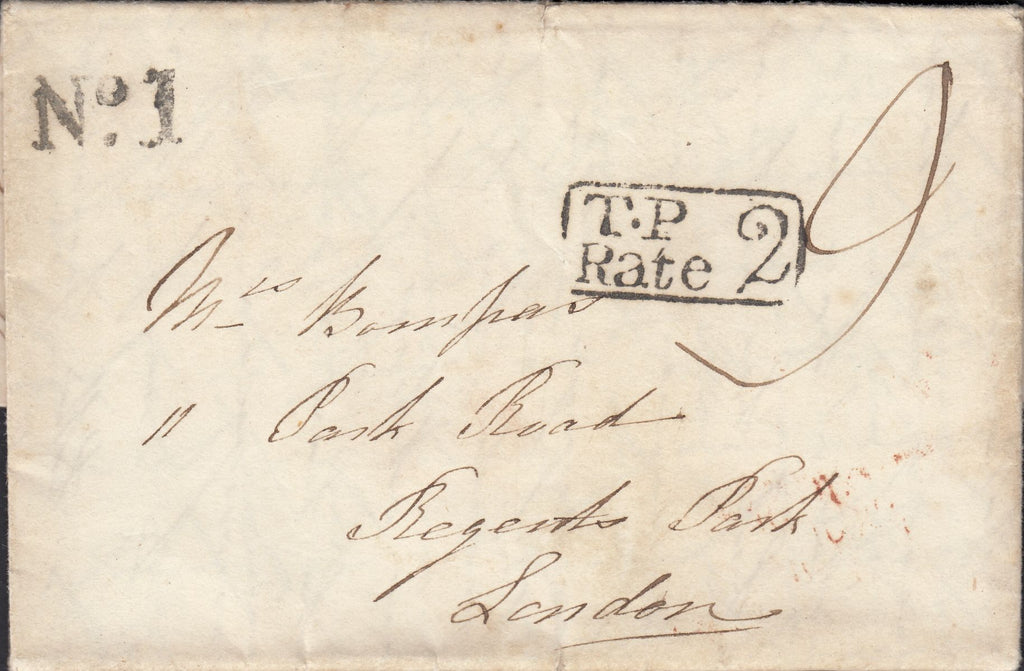 No. 1
T.P
Rate 2
9
Mrs Bompas
11 Park Road
Regents Park
London